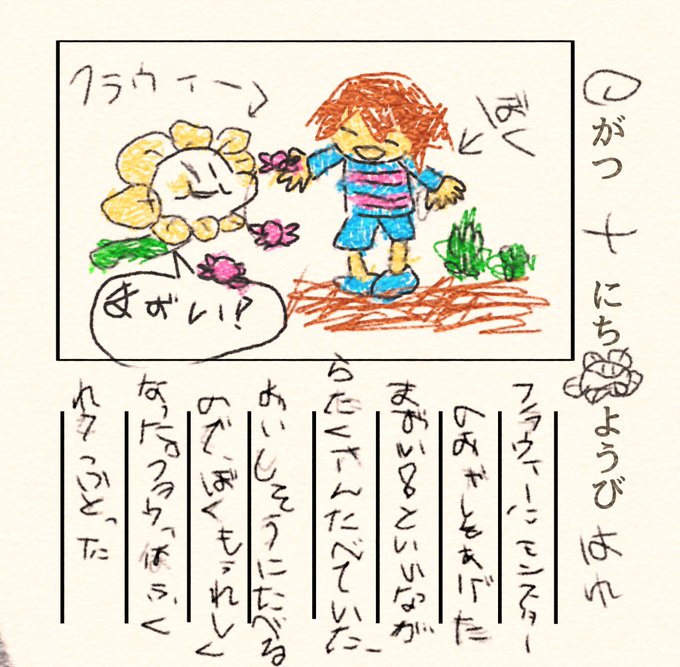 がつ 十 にち ようび はれ
ぼく
フラウィー
まずい!?
フラウィーにモンスター
のおかしをあげた
まずい!?といいなが
らたくさんたべていた
おいしそうにたべる
のでぼくもうれしく
なった。フラウィはふく
れてふとった